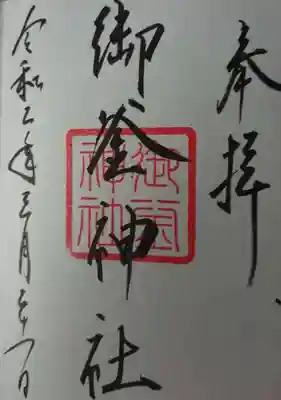 奉拝
御釜神社
令和二年三月二十一日
御釜神社